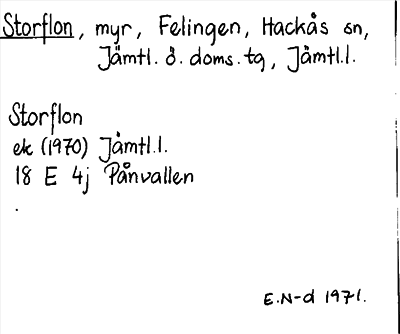 Storflon, myr, Felingen, Hackås sn,
Jämtl. ö. doms. tg, Jämtl.l.
Storflon
ek (1970) Jämtl.l.
18 E 4j Pånvallen
E.N-d 1971.